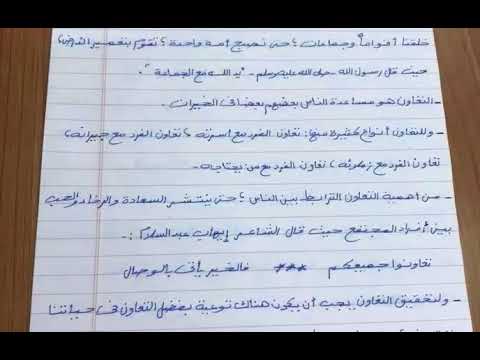 خلقنا أقواماً وجماعات؛ حتى نصبح أمة واحدة؛ تقوم بتعمير الأرض؛
حيث قال رسول الله - صلى الله عليه وسلم - "يد الله مع الجماعة".
- التعاون هو مساعدة الناس بعضهم بعضا فى الخيرات.
- وللتعاون أنواع كثيرة منها: تعاون الفرد مع أسرته؛ تعاون الفرد مع جيرانه؛
تعاون الفرد مع زملائه؛ تعاون الفرد مع من يحتاجه.
- من أهمية التعاون الترابط بين الناس؛ حتى ينتشر السعادة والرخاء والحب
بين أفراد المجتمع حيث قال الشاعر إيهاب عبد السلام :-
تعاونوا جميعكم *** فالخير يأتى بالوصال
- ولتحقيق التعاون يجب أن يكون هناك توعية بفضل التعاون فى حياتنا